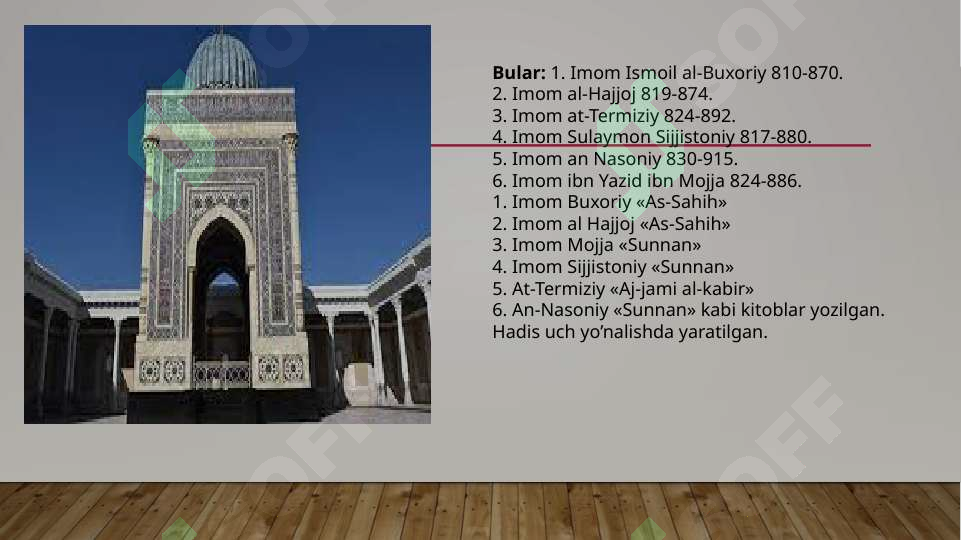 Bular: 1. Imom Ismoil al-Buxoriy 810-870.
2. Imom al-Hajjoj 819-874.
3. Imom at-Termiziy 824-892.
4. Imom Sulaymon Sijjistoniy 817-880.
5. Imom an Nasoniy 830-915.
6. Imom ibn Yazid ibn Mojja 824-886.
1. Imom Buxoriy «As-Sahih»
2. Imom al Hajjoj «As-Sahih»
3. Imom Mojja «Sunnan»
4. Imom Sijjistoniy «Sunnan»
5. At-Termiziy «Aj-jami al-kabir»
6. An-Nasoniy «Sunnan» kabi kitoblar yozilgan.
Hadis uch yo’nalishda yaratilgan.
SOFF
SOFF
SOFF
SOFF